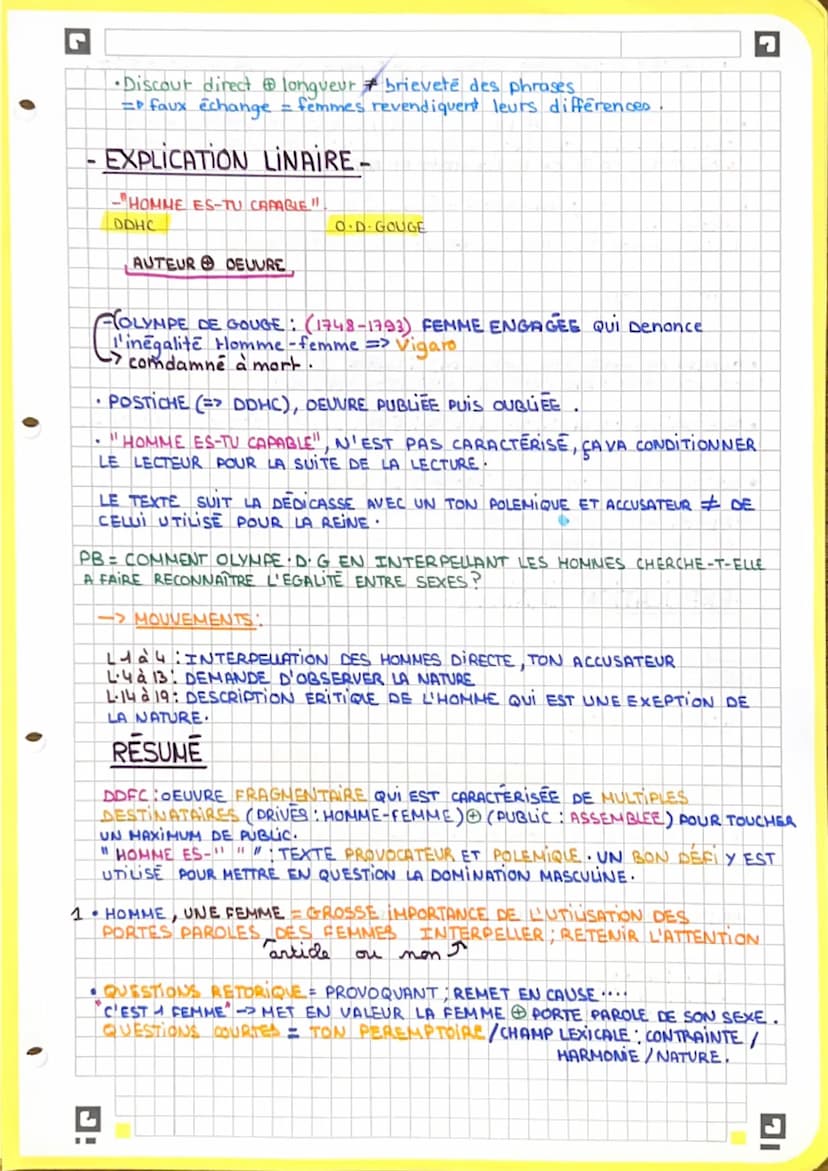 • Discout direct ⊕ longueur ≠ brieveté des phrases
=> faux échange = femmes revendiquent leurs différences.
- EXPLICATION LINAIRE -
-"HOMME ES-TU CAPABLE".
DDHC O.D.GOUGE
AUTEUR ⊕ OEUVRE
- OLYMPE DE GOUGE : (1748-1793) FEMME ENGAGÉE qui Denonce
l'inégalité Homme-femme => Vigaro
→ comdamné à mort.
• POSTICHE (=> DDHC), OEUVRE PUBLIÉE PUIS OUBLIÉE.
• "HOMME ES-TU CAPABLE", N'EST PAS CARACTÉRISÉ, ÇA VA CONDITIONNER
LE LECTEUR POUR LA SUITE DE LA LECTURE.
LE TEXTE SUIT LA DÉDICASSE AVEC UN TON POLEMIQUE ET ACCUSATEUR ≠ DE
CELUI UTILISÉ POUR LA REINE.
PB = COMMENT OLYMPE.D.G EN INTERPELLANT LES HOMMES CHERCHE-T-ELLE
A FAIRE RECONNAÎTRE L'EGALITÉ ENTRE SEXES ?
—> MOUVEMENTS :
L1 à 4 : INTERPELLATION DES HOMMES DIRECTE, TON ACCUSATEUR
L.4 à 13 : DEMANDE D'OBSERVER LA NATURE
L.14 à 19 : DESCRIPTION ERITIQUE DE L'HOMME QUI EST UNE EXEPTION DE
LA NATURE.
RÉSUMÉ
DDFC : OEUVRE FRAGMENTAIRE QUI EST CARACTÉRISÉE DE MULTIPLES
DESTINATAIRES (PRIVÉS : HOMME-FEMME) ⊕ (PUBLIC : ASSEMBLEE) POUR TOUCHER
UN MAXIMUM DE PUBLIC.
" HOMME ES-" " " : TEXTE PROVOCATEUR ET POLEMIQUE. UN BON DÉFI Y EST
UTILISÉ POUR METTRE EN QUESTION LA DOMINATION MASCULINE.
1 • HOMME, UNE FEMME = GROSSE IMPORTANCE DE L'UTILISATION DES
PORTES PAROLES DES FEMMES INTERPELLER ; RETENIR L'ATTENTION
article ou non
• QUESTIONS RETORIQUE = PROVOQUANT ; REMET EN CAUSE ....
"C'EST 1 FEMME" -> MET EN VALEUR LA FEMME ⊕ PORTE PAROLE DE SON SEXE.
QUESTIONS COURTES = TON PEREMPTOIRE / CHAMP LEXICALE : CONTRAINTE /
HARMONIE / NATURE.